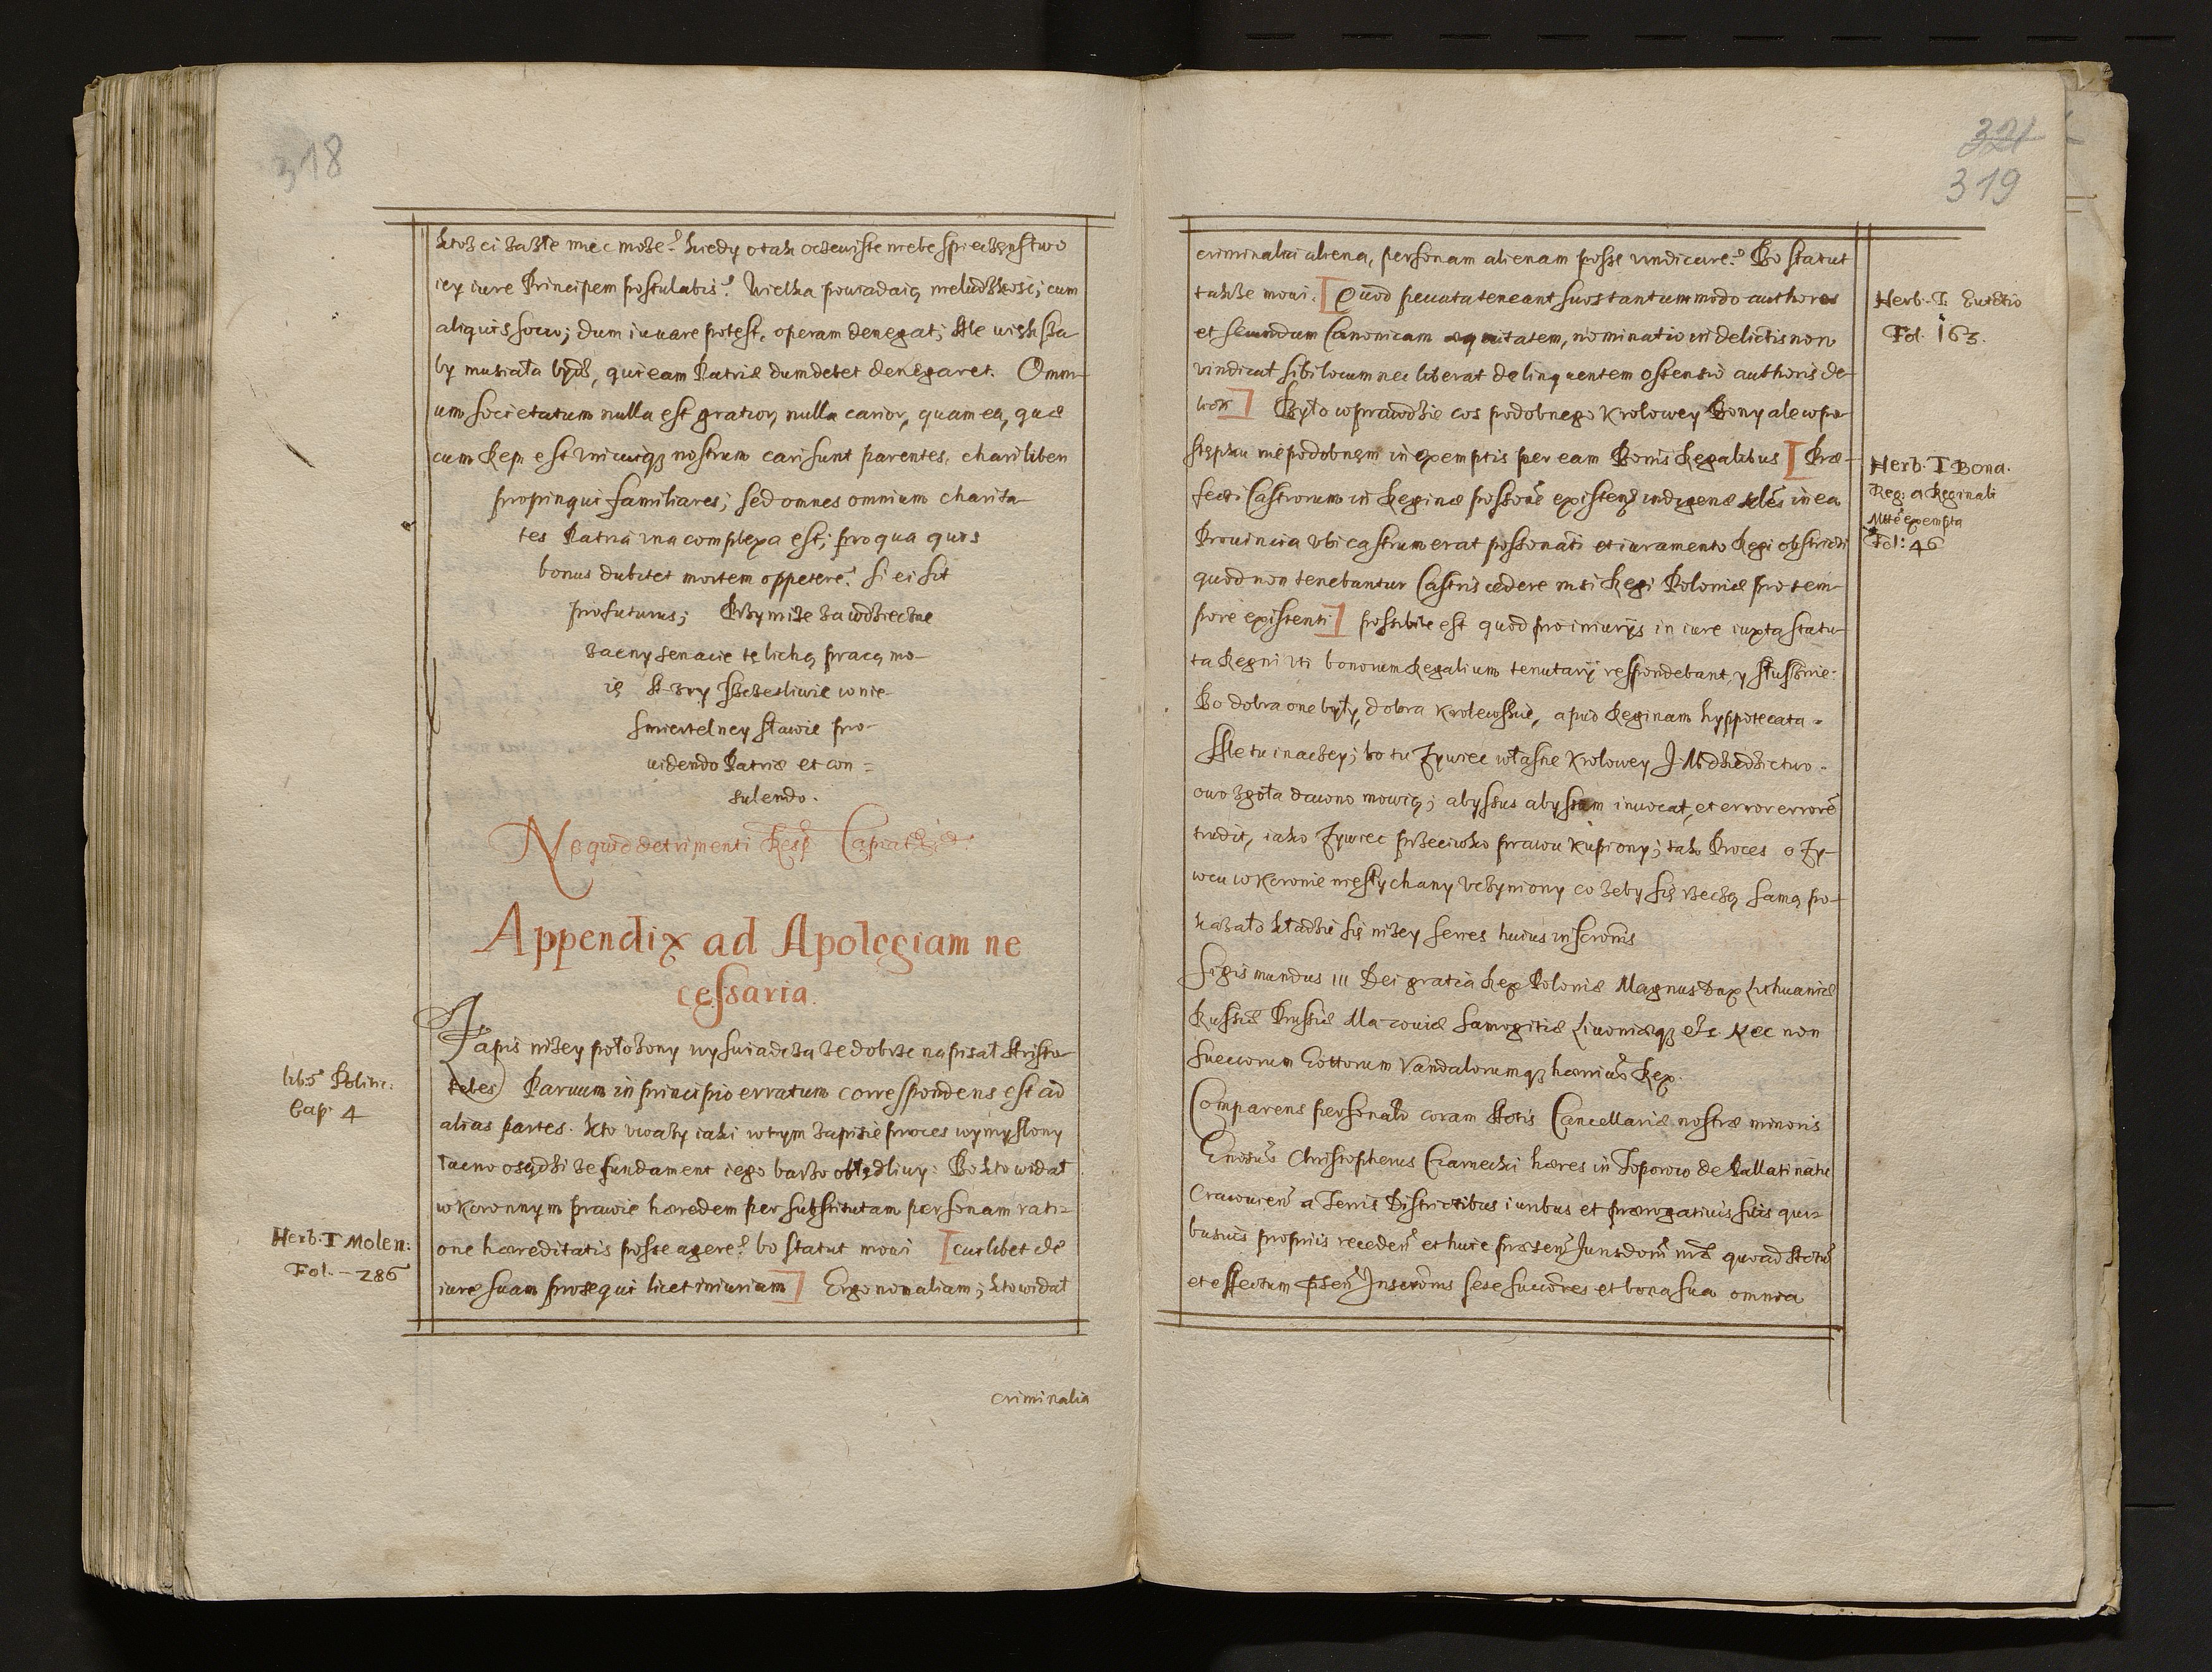 318
ktoż ci za złe miec może? kiedy o tak oczewiste niebespieczęnstwo
iey iure Principem postulabis? Wielka powiadaią nieludzkość, cum
aliquis socio; dum iuvare potest, operam denegat; Ale więksża
by musiała bydź, qui eam Patriæ dum debet denegaret. Omni-
um societatum nulla est gratior, nulla carior, quam ea, quæ
cum Rep. est unicuiq3 nostrum cari sunt parentes, chari liberi
propinqui familiares; sed omnes omnium charita-
tes Patria una complexa est; pro qua quis
bonus dubitet mortem oppetere? si ei sit
profuturus; Przymiże zawdzięcżne
zacny senacie tę lichą pracą mo-
ię A zyy szczesliwie w nie-
smiertelney sławie pro-
uidendo Patriæ et con=
sulendo.
Ne quid detrimenti Resp. Capiat
Appendix ad Apologiam ne
cessaria.
Zapis niżey położony wyswiadcza że dobrze napisał Aristo-
teles) Paruum in principio erratum correspondens est ad
alias partes. Kto uważy iaki w tym zapisie proces wymyslony
łacno osądzi że fundament iego barzo obłędliwy: Bo kto widał
w Koronnym prawie hæredem per substitutam personam rati=
one hæreditatis posse agere? bo statut mowi [cuilibet de
iure suam prosequi licet iniuriam] Ergo non aliam; kto widał
lib 5 Politic:
Cap. 4
Herb. T Molen:
Fol. - 286
criminalia
321
319
criminalia aliena, personam alienam posse vindicare? Bo statut
takze mowi. [Quod peccata teneant suos tantummodo authores
et secundum Canonicam æquitatem, nominatio in delictis non
vindicat sibi locum nec liberat delinquentem ostensio authoris de-
licti] Było wprawdzie cos podobnego Krolowey Bony ale w po-
stępku niepodobnęm in exemptis per eam Bonis Regalibus [Præ-
fecti Castrorum in Reginæ possone existen indigenæ ales in ea
Prouincia vbi castrum erat possonati et iuramento Regi obstricti
quod non tenebantur Castris cedere nisi Regi Poloniæ pro tem-
pore existenti] possibile est quod pro iniurÿs in iure iuxta statu-
ta Regni vti bonorum Regalium tenutarÿ respondebant, y słusznie:
Bo dobra one były, dobra Krolewskie, apud Reginam hyppotecata.
Ale tu inaczey; bo tu Zywiec własne Krolowey J. M dziedzictwo.
owo zgoła dawno mowią; abyssus abyssum inuocat, et error errorē
trudit, iako Zywiec przeciwko prawu kupiony; tak Proces o Zy-
wcu w Koronie niesłychany vczyniony co żeby się rzeczą samą po-
kazało kładzie się niżey series huius inscronis
Sigismundus III Dei gratia Rex Poloniæ Magnus Dux Lithuaniæ
Russiæ Prussiæ Mazouiæ Samogitiæ Liuoniæq3 etc Nec non
Suecorum Gottorum Vandalorumq3 hærrius Rex.
Comparens personalr coram Actis Cancellariæ nostræ minoris
Genosus Christopherus Czarnecki hæres in Toporow de Pallatinatu
Cracouien a Terris Districtibus iuribus et prærogatiuis suis qui-
busuis proprijs receden et huic præsen Jurisdoni nræ quoad Actu
et effectum psen Inscronis sese succores et bona sua omnia
Herb. T. Euictio
Fol. 163.
Herb. T Bona.
Reg: a Reginali
Mtte exempta
Fol: 46